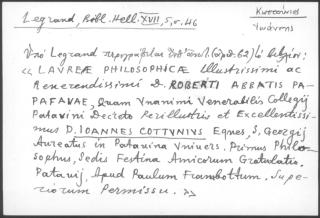 Legrand, Bibl. Hell. XVII, 5, σ. 46
Κωττούνιος
Ἰωάννης
Ὑπὸ Legrand περιγράφεται (ἀριθ. 62) τὸ βιβλίον:
« LAVREÆ PHILOSOPHICÆ Illustrissimi ac
Reuerendissimi D. ROBERTI ABBATIS PA-
PAFAVAE, Quam Vnanimi Venerabilis Collegij
Patavini Decreto Perillustris et Excellentissi-
mus D. IOANNES COTTVNIUS Eques, S. Georgij
Aureatus in Patavina Vnivers. Primus Philo-
sophus, Sedis Festina Amicorum Gratulatio.
Patavij, Apud Paulum Frambottum. Supe-
riorum Permissu. »